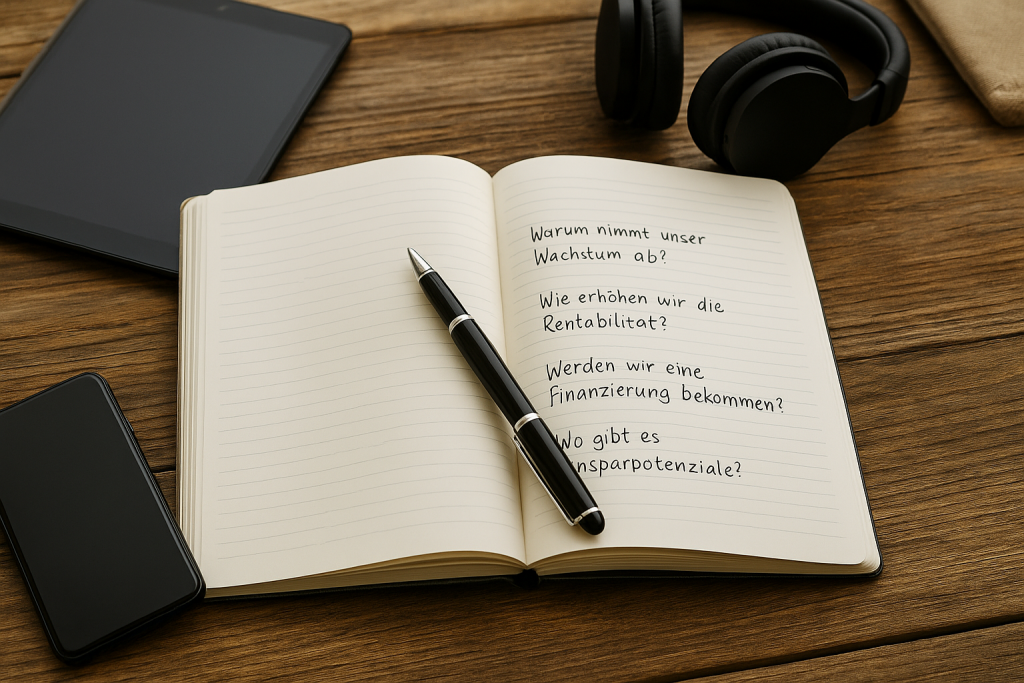 Warum nimmt unser
Wachstum ab?
Wie erhöhen wir die
Rentabilitat?
Werden wir eine
Finanzierung bekommen?
Wo gibt es